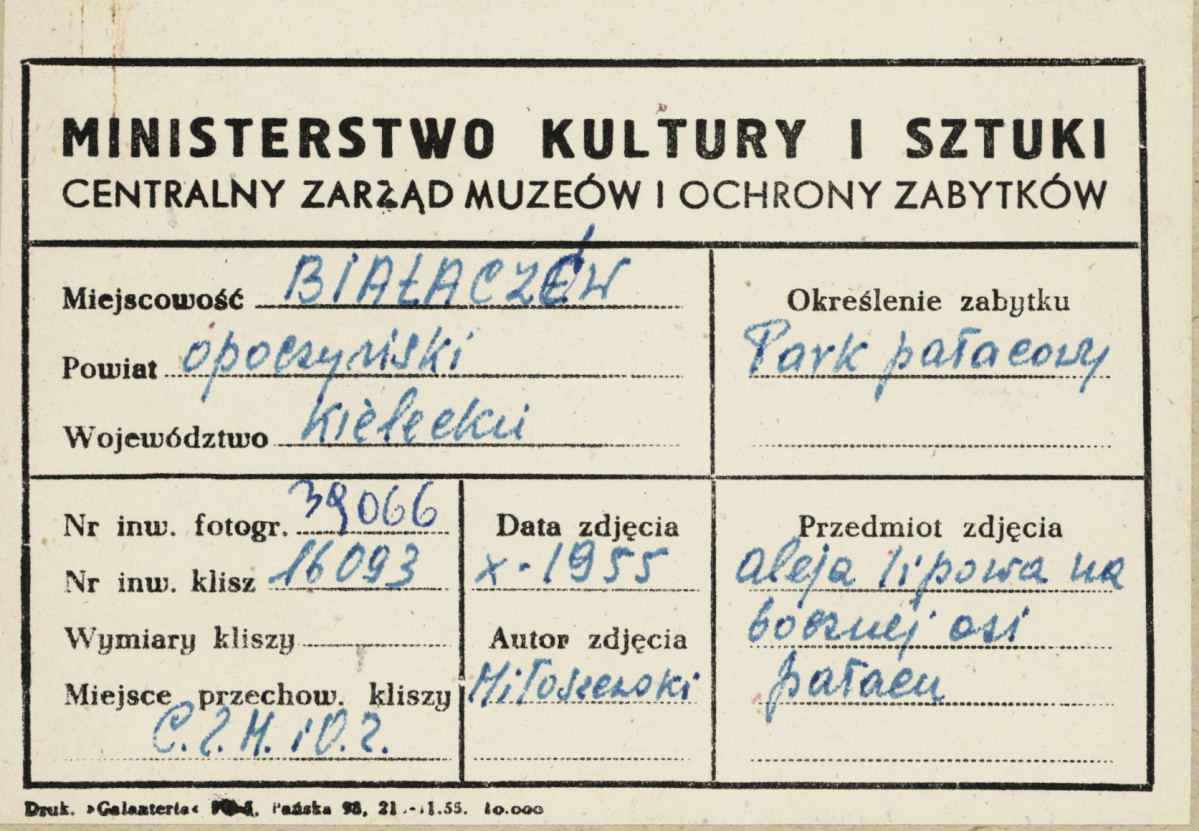 MINISTERSTWO KULTURY I SZTUKI
CENTRALNY ZARZĄD MUZEÓW I OCHRONY ZABYTKÓW
Miejscowość BIAŁACZÓW
Powiat opoczyński
Województwo kieleckie
Określenie zabytku
Park pałacowy
Nr inw. fotogr. 39066
Nr inw. klisz 16093
Wymiary kliszy
Miejsce przechow. kliszy
C.Z.M. i O.Z.
Data zdjęcia
X - 1955
Autor zdjęcia
Miłoszewski
Przedmiot zdjęcia
aleja lipowa na
bocznej osi
pałacu
Druk. »Galanteria« Pańska 98, 21 .55. 10.000